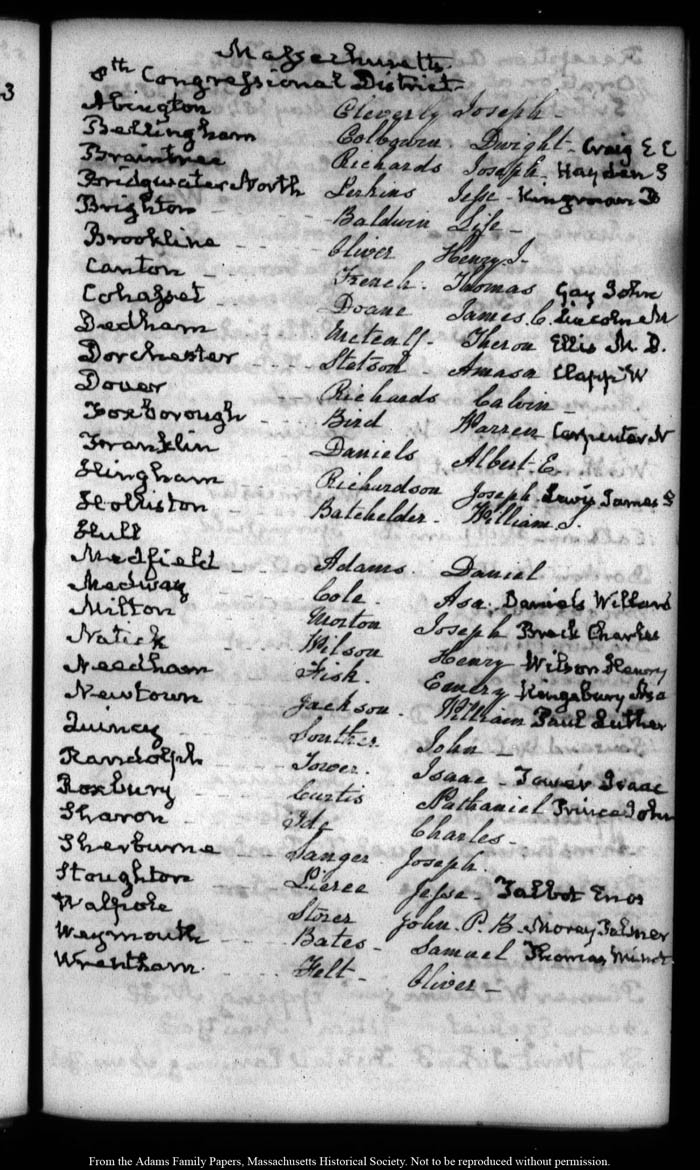 3
Massachusetts.
8th Congressional District.
Abington Cleverly Joseph -
Bellingham Dwight - Craig E E
Braintree Richards Joseph - Hayden S
Bridgwater North Perkins Jesse - Kingman D
Brighton - - Baldwin Life -
Brookline - - - Oliver Henry J.
Canton - - - French - Thomas Gay John
Cohasset - - - Doane James. C. Lincoln M
Dedham - - - Metcalf - Theron Ellis M. D.
Dorchester - - - Stetson - Amasa Clapp W
Dover - - - Richards Calvin -
Foxborough - - - Bird Warren Carpenter N
Franklin Daniels Albert - E.
Hingham Richardson Joseph Lewis James S
Holliston - - - Batchelder - William. S.
Hull
Medfield - - - Adams. Daniel
Medway Cole. Asa. Daniels Willard
Milton Morton Joseph Breck Charles
Natick Wilson Henry Wilson Henry
Needham - - - Fisk. Emery Kingsbury Asa
Newtown - - - Jackson. William Paul Luther
Quincy - - - Souther John -
Randolph - - - Tower. Isaac - Tower Isaac
Roxbury - - - Curtis Nathaniel Prince John
Sharon - - - Ide Charles -
Sherburne - - - Sanger Joseph.
Stoughton - - - Pierce Jesse - Talbot Enos
Walpole Storer John. P. B. Morey Palmer
Weymouth - - - Bates - Samuel Thomas
Wrentham. - - - Felt - Oliver -
From the Adams Family Papers, Massachusetts Historical Society. Not to be reproduced without permission.